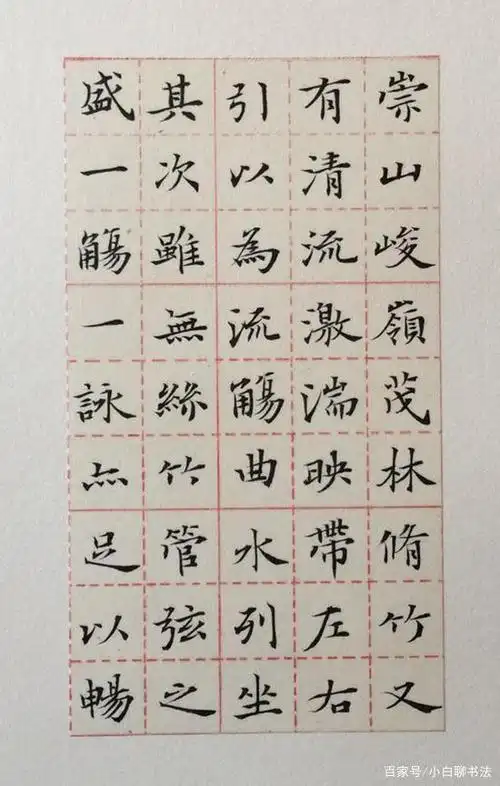 崇山峻嶺茂林脩竹又
有清流激湍映帶左右
引以為流觴曲水列坐
其次雖無絲竹管弦之
盛一觴一詠亦足以暢
百家号/小白聊书法